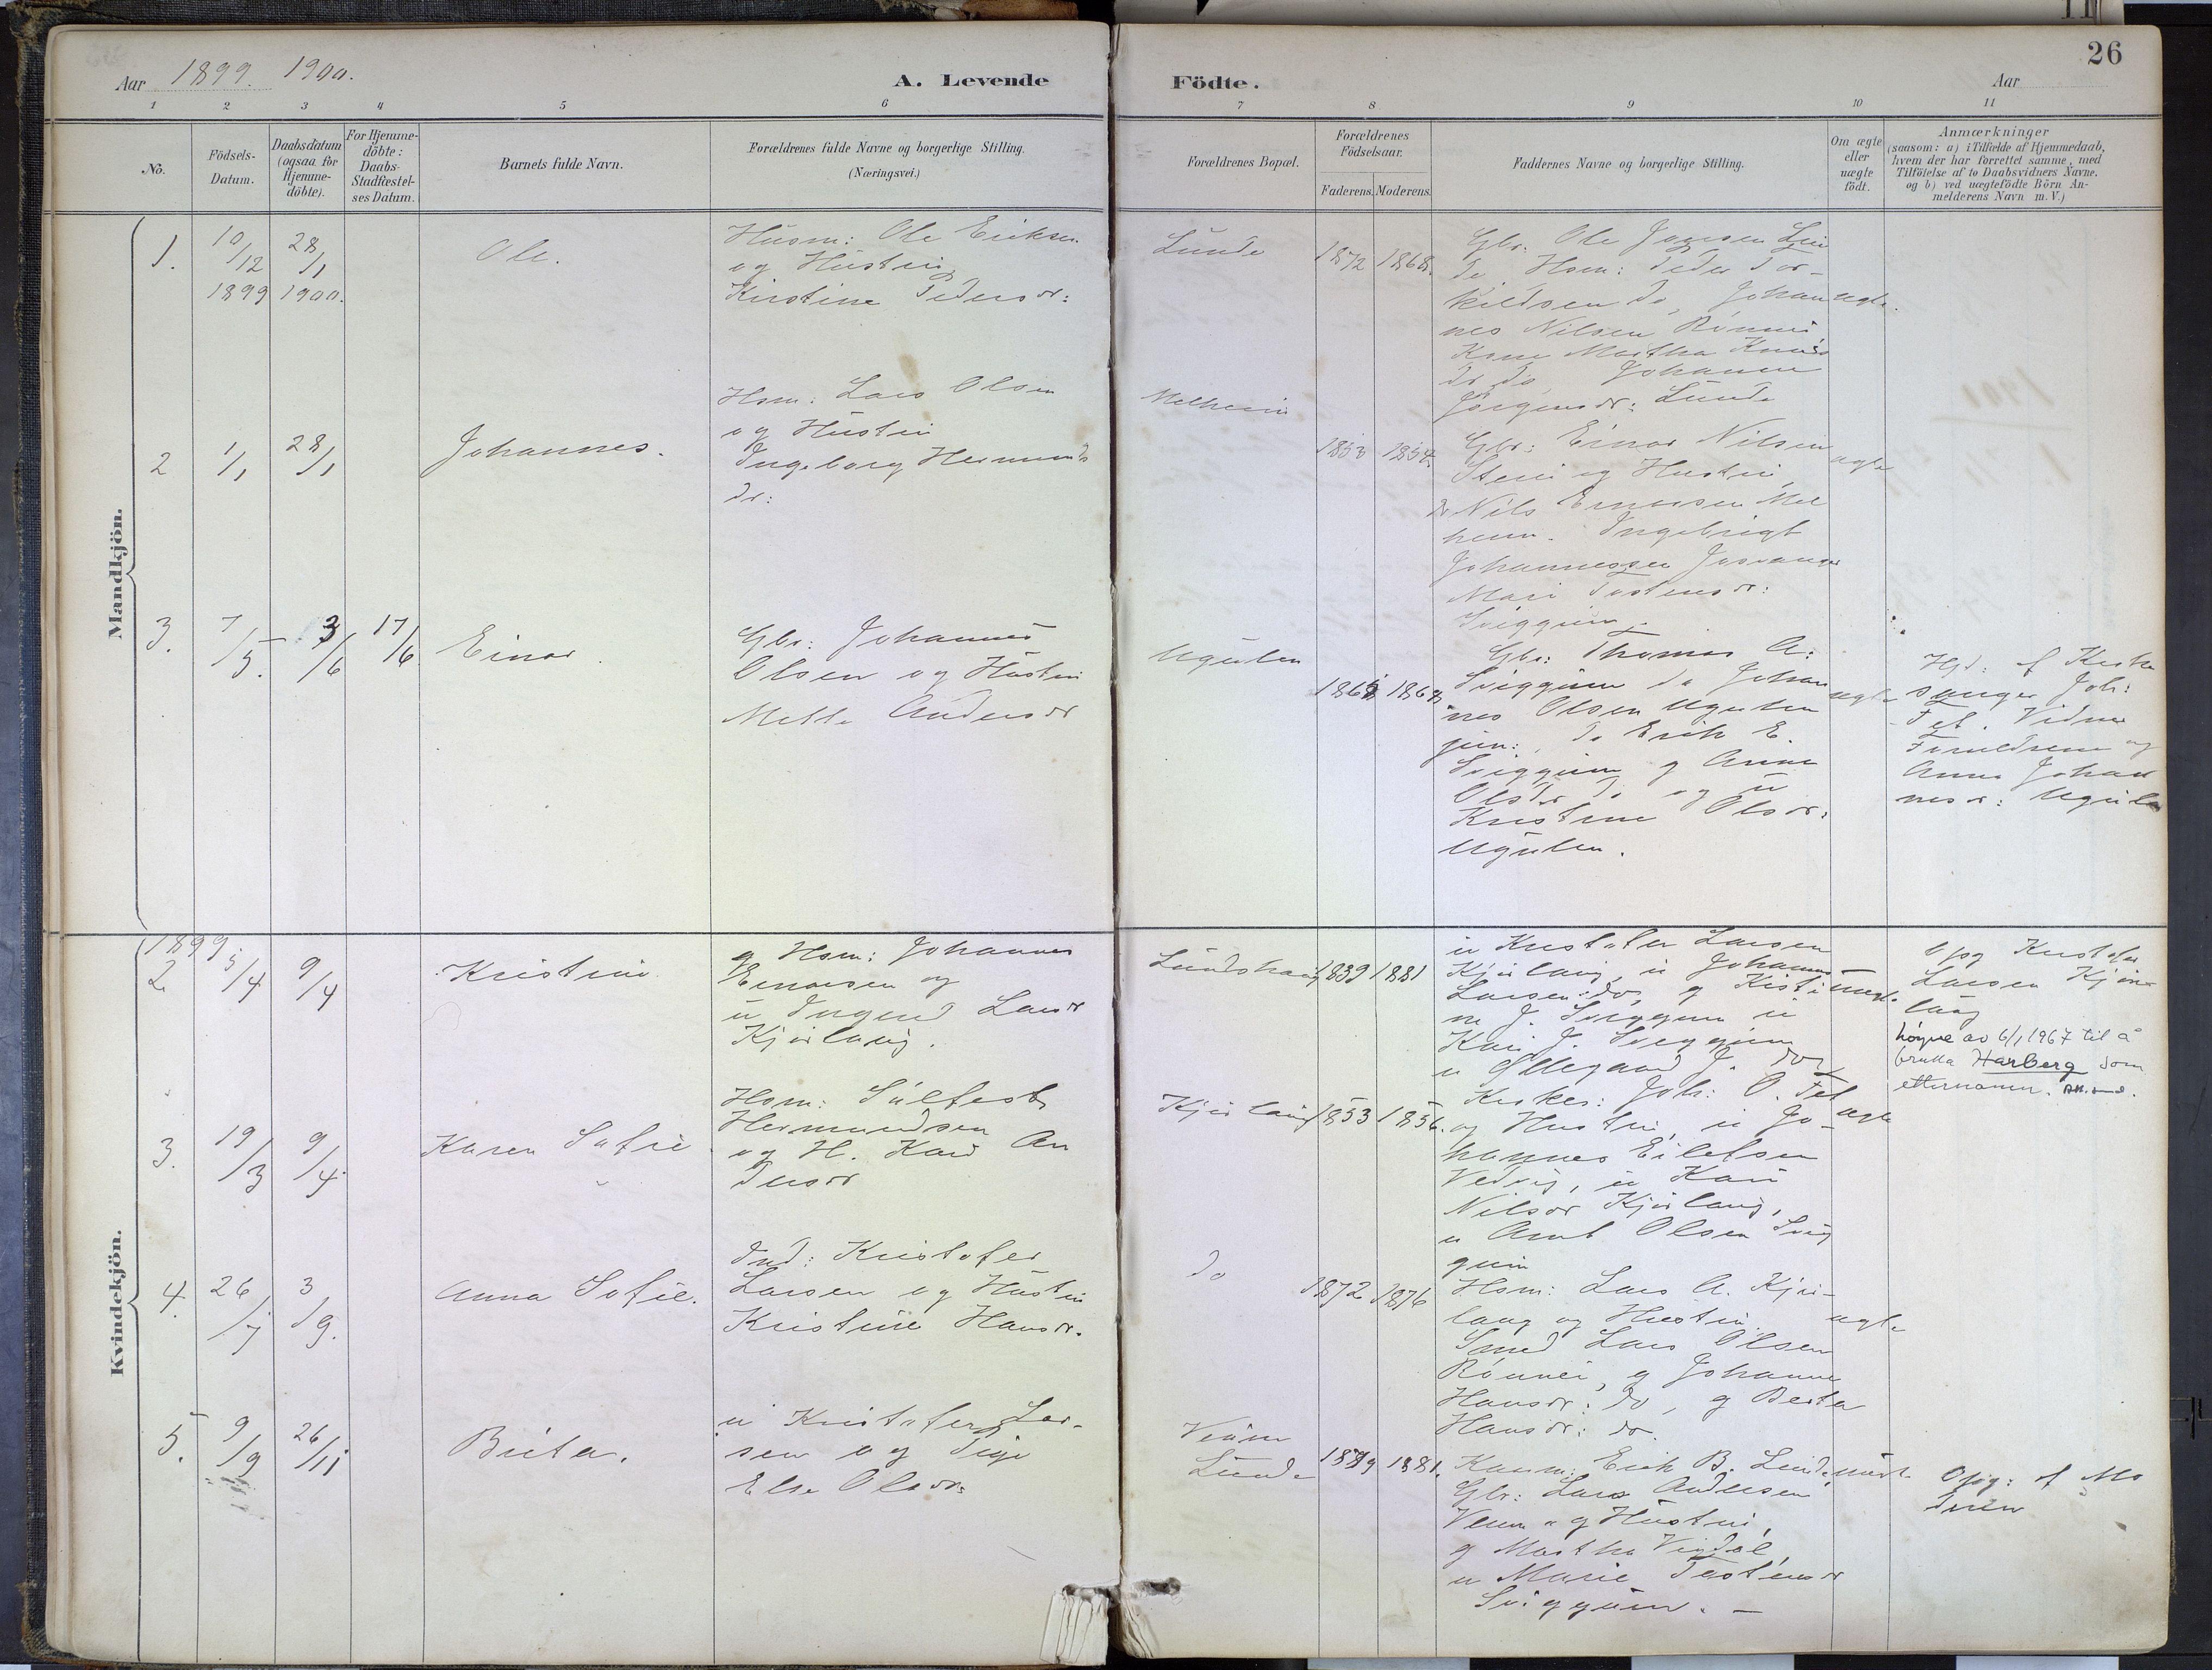 26
Aar 1899. 1900.
A. Levende Födte.
Aar
1 2 3 4 5 6 7 8 9 10 11
No.
Födsels-
Datum.
Daabsdatum
(ogsaa for
Hjemme-
döbte).
For Hjemme-
döbte:
Daabs-
Stadfæstel-
ses Datum.
Barnets fulde Navn.
Forældrenes fulde Navne og borgerlige Stilling.
(Næringsvei.)
Forældrenes Bopæl.
Forældrenes
Födselsaar.
Faderens. Moderens.
Faddernes Navne og borgerlige Stilling.
Om ægte
eller
uægte
födt.
Anmærkninger
(saasom: a) i Tilfælde af Hjemmedaab,
hvem der har forrettet samme, med
Tilföielse af to Daabsvidners Navne.
og b) ved uægtefödte Börn An-
melderens Navn m.V.)
Mandkjön.
1.
10/12
1899
28/1
1900.
Ole.
Husm: Ole Eriksen
og Hustru
Kirstine Pedersdr:
Lunde
1872 1868.
Gbr. Ole Jonsen Lun
de Hsm: Peder Tor-
kildsen do, Johan
nes Nilsen Rönnei
Kone Martha Knuds
dr do, Johanne
Jörgensdr: Lunde
ægte.
2
1/1
28/1
Johannes.
Hsm: Lars Olsen
og Hustru
Ingeborg Hermunds
dr:
Melheim
1853 1854.
Gbr: Einar Nilsen
og Hustru,
Nils Einarsen Mel
heim. Ingebrigt
Johannessen
Mari Tostensdr:
Sviggum.
ægte
3.
7/5.
3/6
17/6
Einar.
Gbr: Johannes
Olsen og Hustru
Mette Andersdr
Ugulen
1868.
Gbr: Thomas A:
Sviggum do Johan
nes Olsen Ugulen
jun:, do Erik E.
Sviggum g Anne
Olsdr do og u
Kristine Olsdr:
Ugulen.
ægte
Hjd: af Kirke
sanger Joh:
Fet. Vidner
Forældrene og
Anna Johan
nesdr: Ugulen
Kvindekjön.
1899.
2
5/4
9/4
Kristine
g Hsm: Johannes
Einarsen og
u Ingeid Larsdr
Kjörlaug.
Lundshaug
1839 1881
u Kristofer Larsen
Kjörlaug, u Johannes
Larsen do, g Kisti
ne J. Sviggum u
Kari J. Sviggum
u Ollegaard J. do,
uægte
Opg Kristofer
Larsen Kjör
laug
løyve av 6/1 1967 til å
bruka Harberg som
etternamn.
3.
19/3
9/4.
Karen Sofie
Hsm: Sulfest
Hermundsen
og H. Kari An
dersdr
Kjörlaug
1853 1856.
Kirkes: Joh: O. Fet
og Hustru, u Jo-
hannes Eilefsen
Vedvig, u Kari
Nilsdr Kjörlaug,
u Arnt Olsen Svig
gum
ægte
4.
26/7
3/9.
Anna Sofie.
Ind: Kristofer
Larsen og Hustru
Kristine Hansdr.
do
1872 1876
Hsm: Lars A. Kjör-
laug og Hustru.
Smed Lars Olsen
Rönnei, g Johanne
Hansdr: do, g Berta
Hansdr: do.
ægte
5.
9/9
26/11
Brita.
u Kristofer Lar-
sen og Pige
Else Olsdr:
Lunde
1879 1881.
Erik B. Lunde
Gbr: Lars Andersen
Venm og Hustru,
g Martha Vigdal,
u Marie Tostensdr
Sviggum. -
uægte
Opg: af Mo
deren